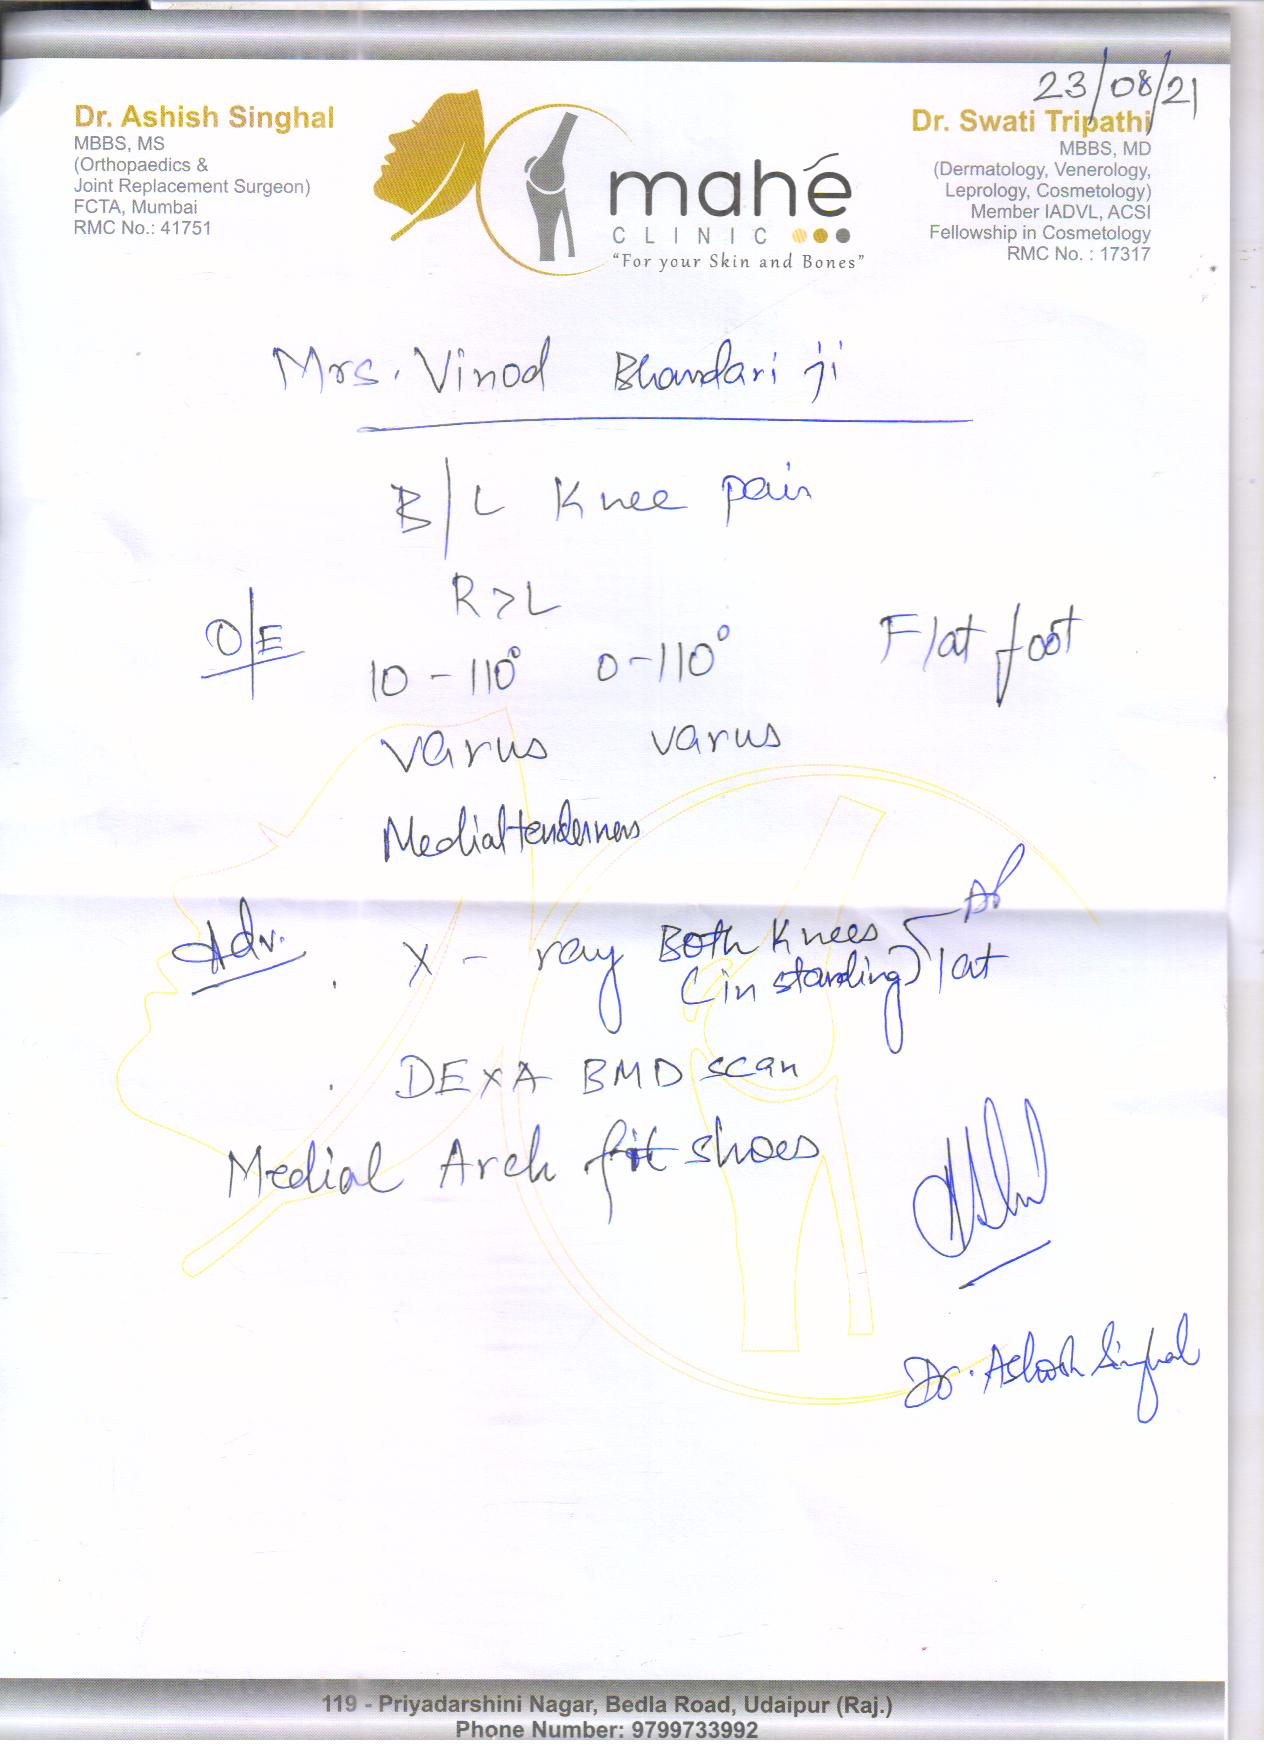 23/08/21
Dr. Ashish Singhal
MBBS, MS
(Orthopaedics &
Joint Replacement Surgeon)
FCTA, Mumbai
RMC No.: 41751
mahé
CLINIC
“For your Skin and Bones”
Dr. Swati Tripathi
MBBS, MD
(Dermatology, Venerology,
Leprology, Cosmetology)
Member IADVL, ACSI
Fellowship in Cosmetology
RMC No. : 17317
Mrs. Vinod Bhandari ji
B/L Knee pain
R>L
O/E
10-110° 0-110° Flat foot
varus varus
Medial tenderness
Adv. . X-ray Both Knees AP
(in standing) lat
. DEXA BMD scan
Medial Arch fit shoes
Dr. Ashish Singhal
119 - Priyadarshini Nagar, Bedla Road, Udaipur (Raj.)
Phone Number: 9799733992